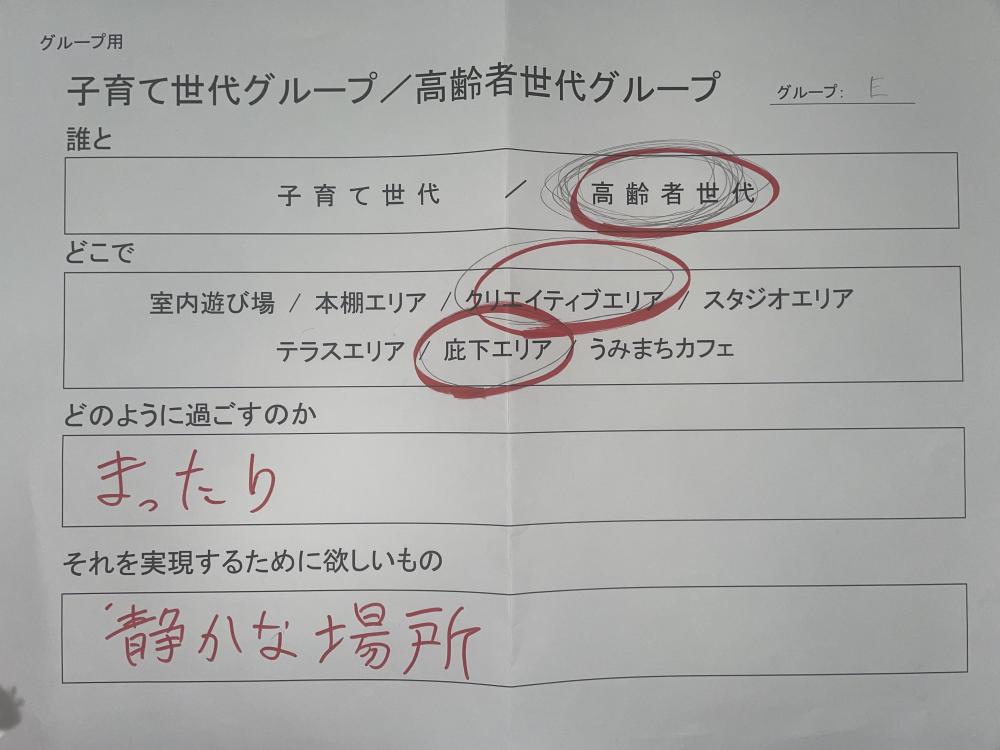 グループ用
子育て世代グループ／高齢者世代グループ グループ： E
誰と
子育て世代 ／ 高齢者世代
どこで
室内遊び場 / 本棚エリア / クリエイティブエリア / スタジオエリア
テラスエリア / 庇下エリア / うみまちカフェ
どのように過ごすのか
まったり
それを実現するために欲しいもの
静かな場所